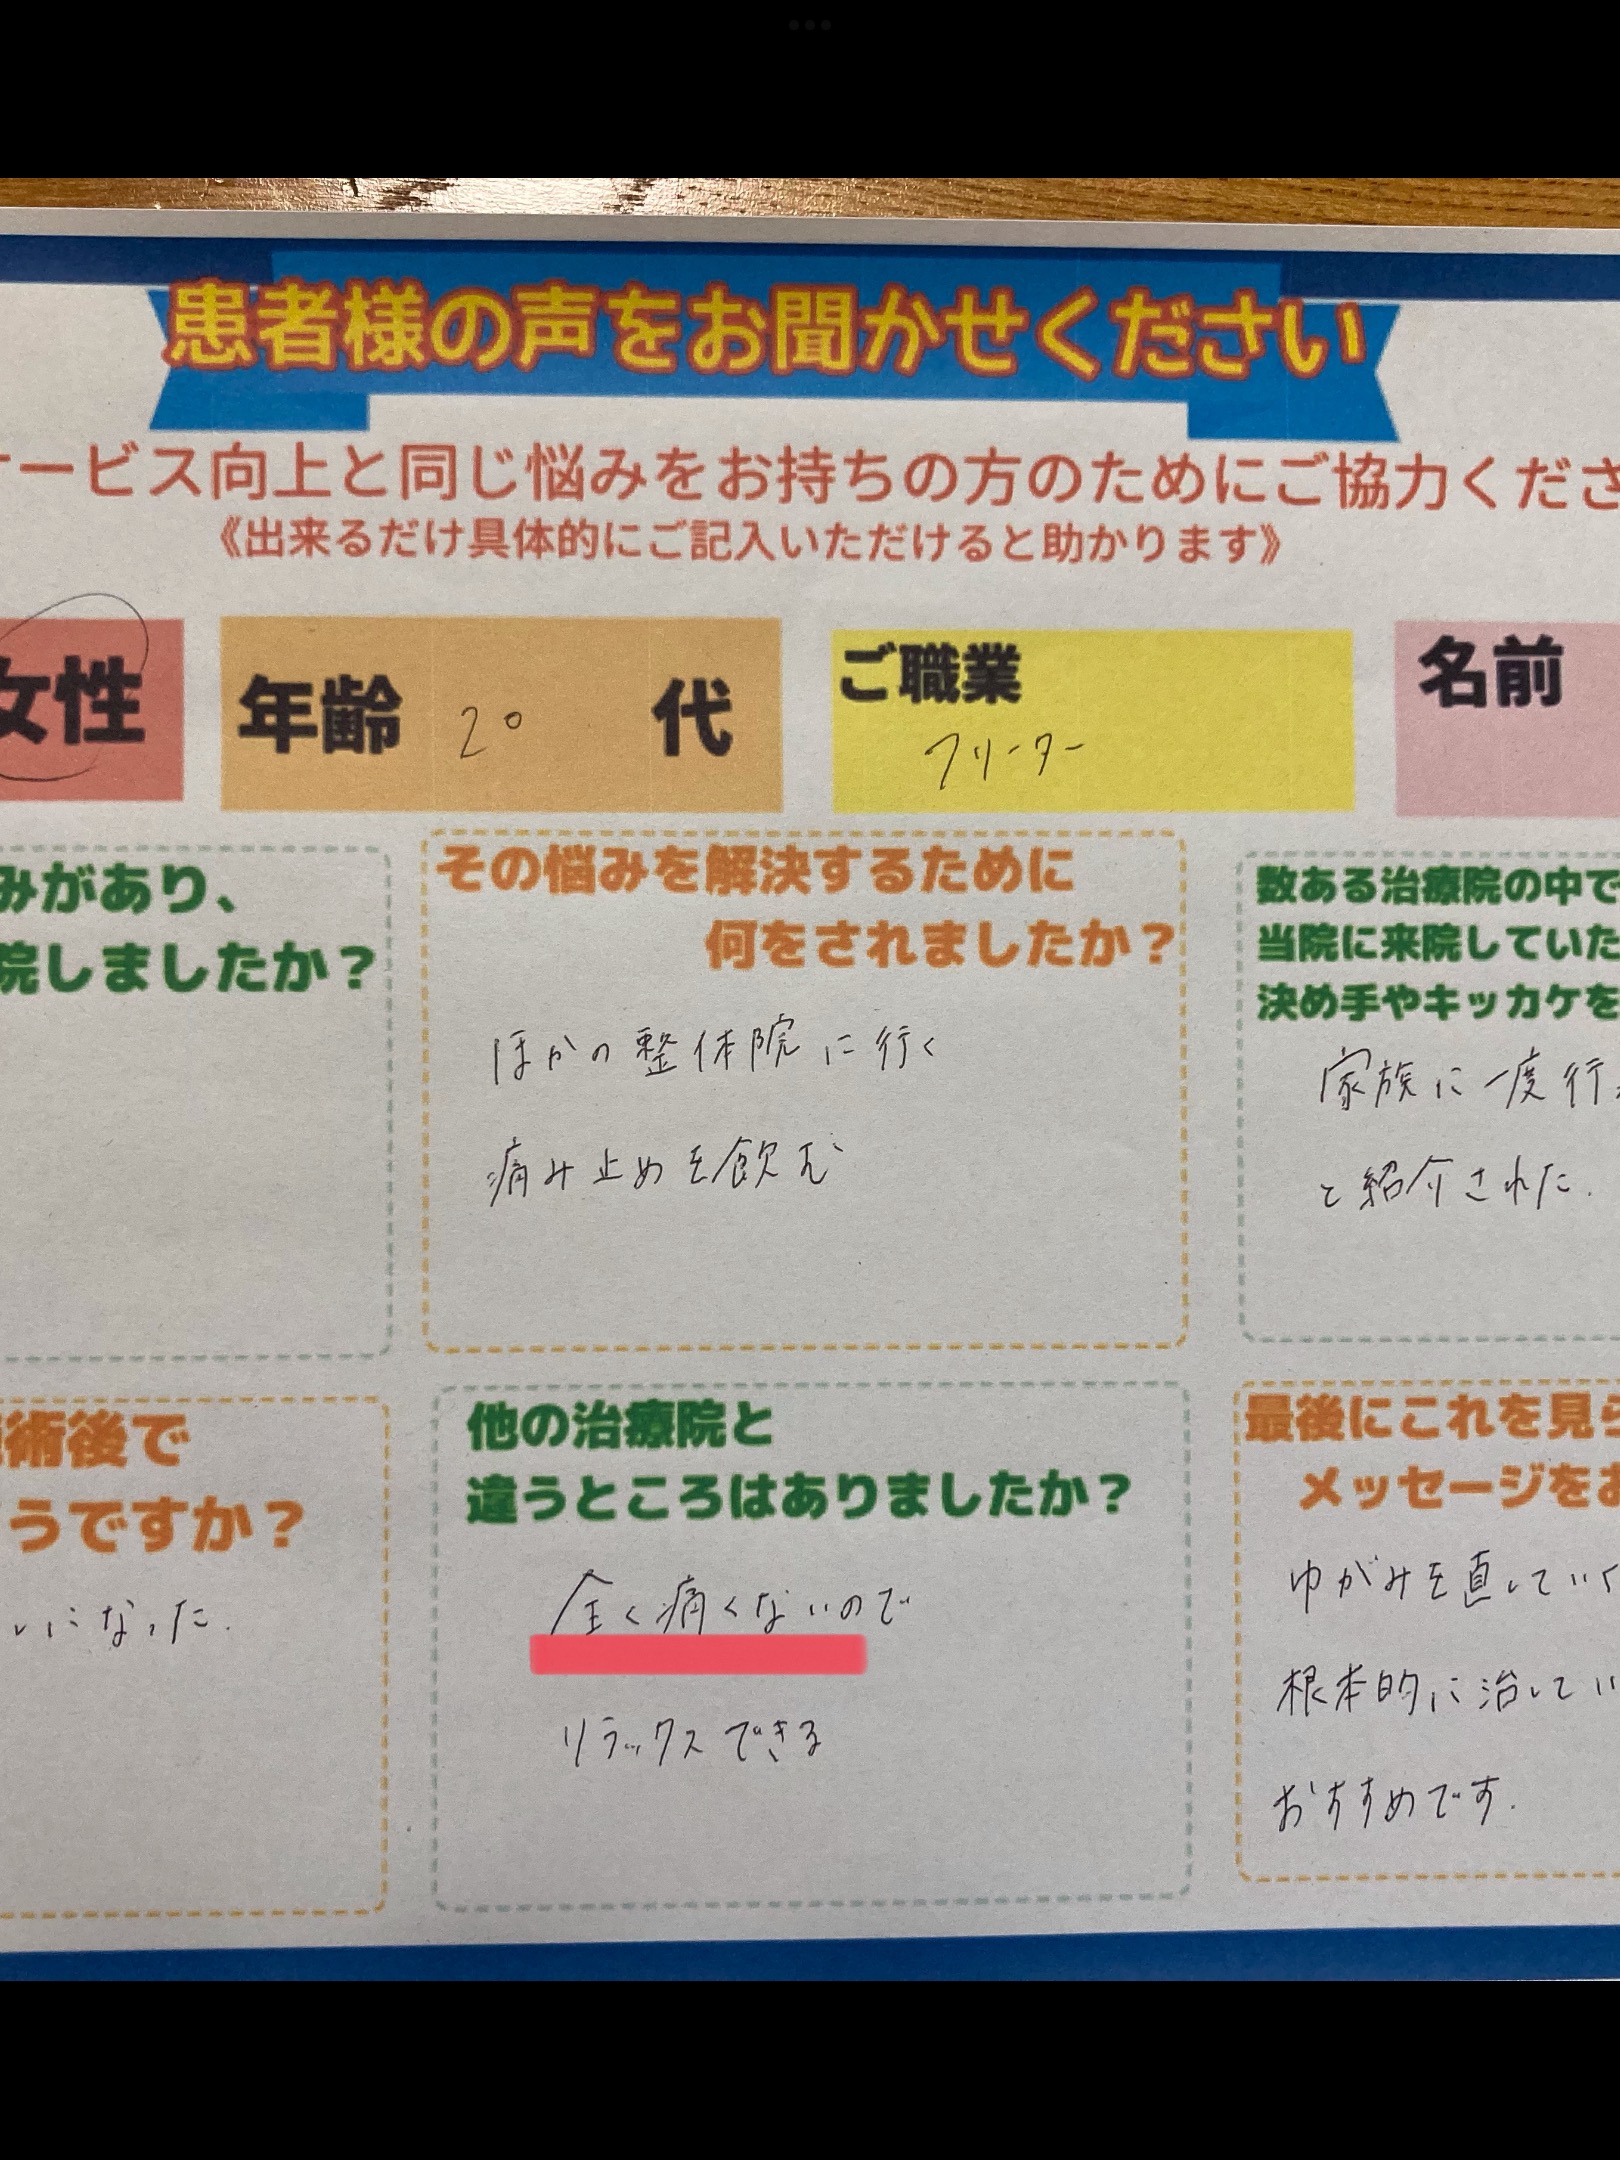 患者様の声をお聞かせください
ービス向上と同じ悩みをお持ちの方のためにご協力くださ
《出来るだけ具体的にご記入いただけると助かります》
女性
年齢 20 代
ご職業
フリーター
名前
みがあり、
院しましたか？
その悩みを解決するために
何をされましたか？
ほかの整体院に行く
痛み止めを飲む
数ある治療院の中で
当院に来院していた
決め手やキッカケを
家族に一度行
と紹介された.
術後で
うですか？
になった.
他の治療院と
違うところはありましたか？
全く痛くないので
リラックスできる
最後にこれを見ら
メッセージをお
ゆがみを直してい
根本的に治してい
おすすめです.